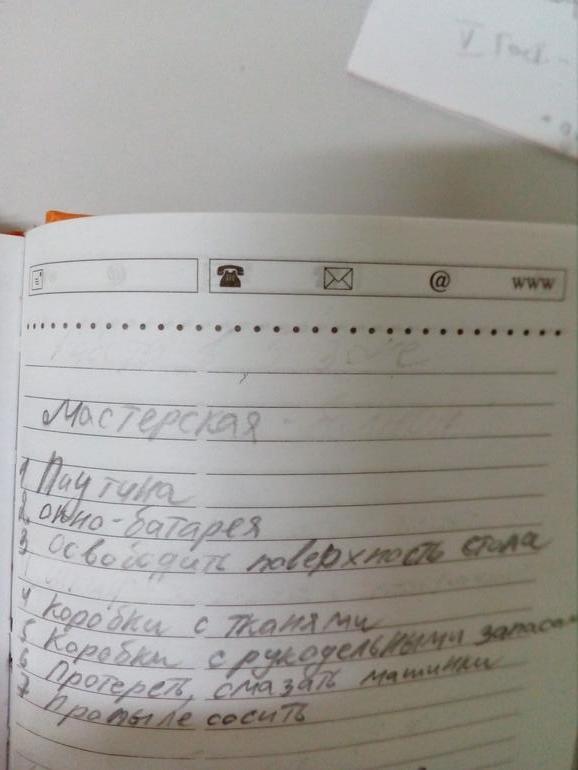 V Гост -
@ www
Мастерская -
1 Паутина
2. окно-батарея
3 Освободить поверхность стола
4 Коробки с тканями
5 Коробки с рукодельными запасам
6 Протереть, смазать машинки
7 Пропылесосить